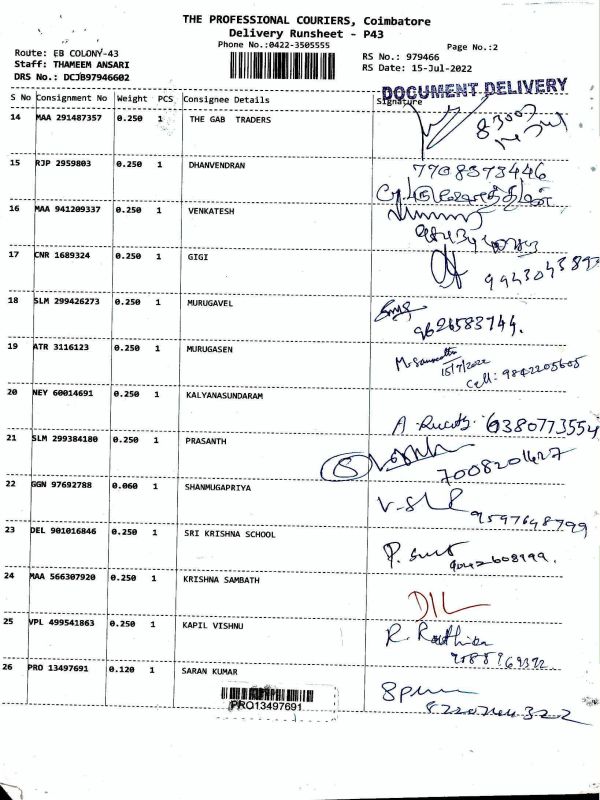 THE PROFESSIONAL COURIERS, Coimbatore
Delivery Runsheet - P43
Phone No.:0422-3505555
Page No.:2
Route: EB COLONY-43
RS No.: 979466
Staff: THAMEEM ANSARI
RS Date: 15-Jul-2022
DRS No.: DCJB97946602
DOCUMENT DELIVERY
S No Consignment No Weight PCS Consignee Details Signature
14 MAA 291487357 0.250 1 THE GAB TRADERS
15 RJP 2959803 0.250 1 DHANVENDRAN 7708373446
16 MAA 941209337 0.250 1 VENKATESH
17 CNR 1689324 0.250 1 GIGI
9943043893
18 SLM 299426273 0.250 1 MURUGAVEL
9626583744.
19 ATR 3116123 0.250 1 MURUGASEN
15/7/2022
Cell: 9842205605
20 NEY 60014691 0.250 1 KALYANASUNDARAM
A. 6380773554
21 SLM 299384180 0.250 1 PRASANTH
7008201427
22 GGN 97692788 0.060 1 SHANMUGAPRIYA
9597648799
23 DEL 901016846 0.250 1 SRI KRISHNA SCHOOL
P.
24 MAA 566307920 0.250 1 KRISHNA SAMBATH
DIL
25 VPL 499541863 0.250 1 KAPIL VISHNU
R.
26 PRO 13497691 0.120 1 SARAN KUMAR
PRO13497691